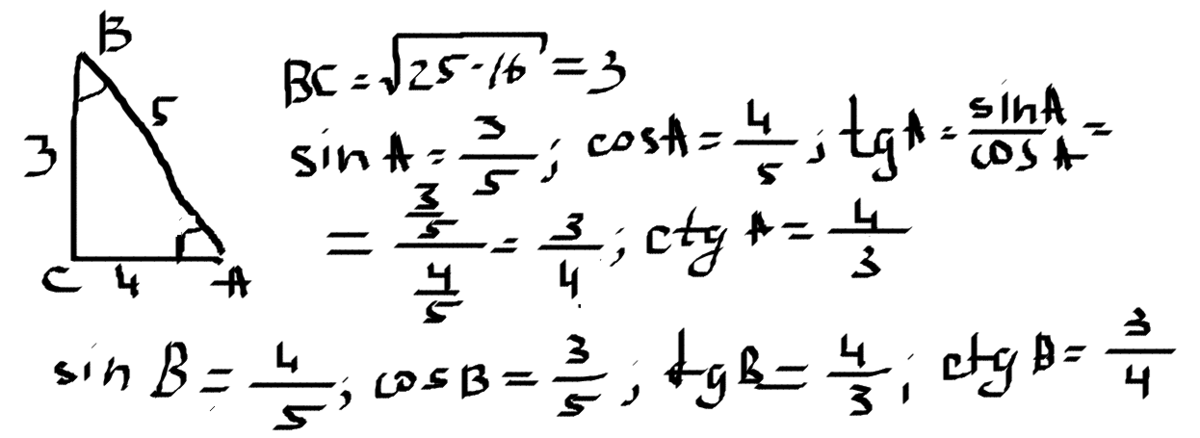 B
5
3
C 4 A
BC = √25-16 = 3
sin A = 3/5; cos A = 4/5; tg A = sin A/cos A =
= (3/5)/(4/5) = 3/4; ctg A = 4/3
sin B = 4/5; cos B = 3/5; tg B = 4/3; ctg B = 3/4